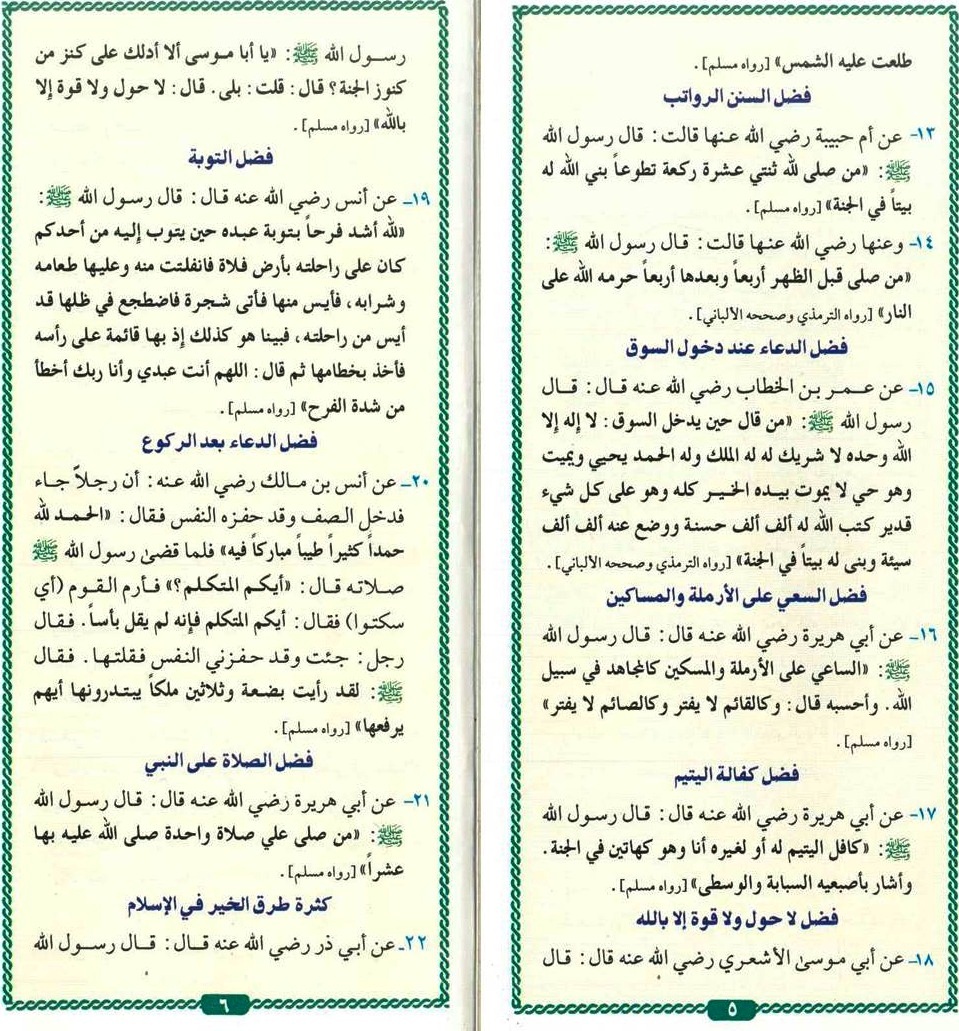 طلعت عليه الشمس» [رواه مسلم].
فضل السنن الرواتب
١٣- عن أم حبيبة رضي الله عنها قالت: قال رسول الله
ﷺ: «من صلى لله ثنتي عشرة ركعة تطوعاً بني الله له
بيتاً في الجنة» [رواه مسلم].
١٤- وعنها رضي الله عنها قالت: قال رسول الله ﷺ:
«من صلى قبل الظهر أربعاً وبعدها أربعاً حرمه الله على
النار» [رواه الترمذي وصححه الألباني].
فضل الدعاء عند دخول السوق
١٥- عن عمر بن الخطاب رضي الله عنه قال: قال
رسول الله ﷺ: «من قال حين يدخل السوق: لا إله إلا
الله وحده لا شريك له له الملك وله الحمد يحيي ويميت
وهو حي لا يموت بيده الخير كله وهو على كل شيء
قدير كتب الله له ألف ألف حسنة ووضع عنه ألف ألف
سيئة وبنى له بيتاً في الجنة» [رواه الترمذي وصححه الألباني].
فضل السعي على الأرملة والمساكين
١٦- عن أبي هريرة رضي الله عنه قال: قال رسول الله
ﷺ: «الساعي على الأرملة والمسكين كالمجاهد في سبيل
الله. وأحسبه قال: وكالقائم لا يفتر وكالصائم لا يفتر»
[رواه مسلم].
فضل كفالة اليتيم
١٧- عن أبي هريرة رضي الله عنه قال: قال رسول الله
ﷺ: «كافل اليتيم له أو لغيره أنا وهو كهاتين في الجنة.
وأشار بأصبعيه السبابة والوسطى» [رواه مسلم].
فضل لا حول ولا قوة إلا بالله
١٨- عن أبي موسىٰ الأشعري رضي الله عنه قال: قال
٥
رسول الله ﷺ: «يا أبا موسى ألا أدلك على كنز من
كنوز الجنة؟ قال: قلت: بلى. قال: لا حول ولا قوة إلا
بالله» [رواه مسلم].
فضل التوبة
١٩- عن أنس رضي الله عنه قال: قال رسول الله ﷺ:
«لله أشد فرحاً بتوبة عبده حين يتوب إليه من أحدكم
كان على راحلته بأرض فلاة فانفلتت منه وعليها طعامه
وشرابه، فأيس منها فأتى شجرة فاضطجع في ظلها قد
أيس من راحلته، فبينا هو كذلك إذ بها قائمة على رأسه
فأخذ بخطامها ثم قال: اللهم أنت عبدي وأنا ربك أخطأ
من شدة الفرح» [رواه مسلم].
فضل الدعاء بعد الركوع
٢٠- عن أنس بن مالك رضي الله عنه: أن رجلاً جاء
فدخل الصف وقد حفزه النفس فقال: «الحمد لله
حمداً كثيراً طيباً مباركاً فيه» فلما قضىٰ رسول الله ﷺ
صلاته قال: «أيكم المتكلم؟» فأرم القوم (أي
سكتوا) فقال: أيكم المتكلم فإنه لم يقل بأساً. فقال
رجل: جئت وقد حفزني النفس فقلتها. فقال
ﷺ: لقد رأيت بضعة وثلاثين ملكاً يبتدرونها أيهم
يرفعها» [رواه مسلم].
فضل الصلاة على النبي
٢١- عن أبي هريرة رضي الله عنه قال: قال رسول الله
ﷺ: «من صلى علي صلاة واحدة صلى الله عليه بها
عشراً» [رواه مسلم].
كثرة طرق الخير في الإسلام
٢٢- عن أبي ذر رضي الله عنه قال: قال رسول الله
٦